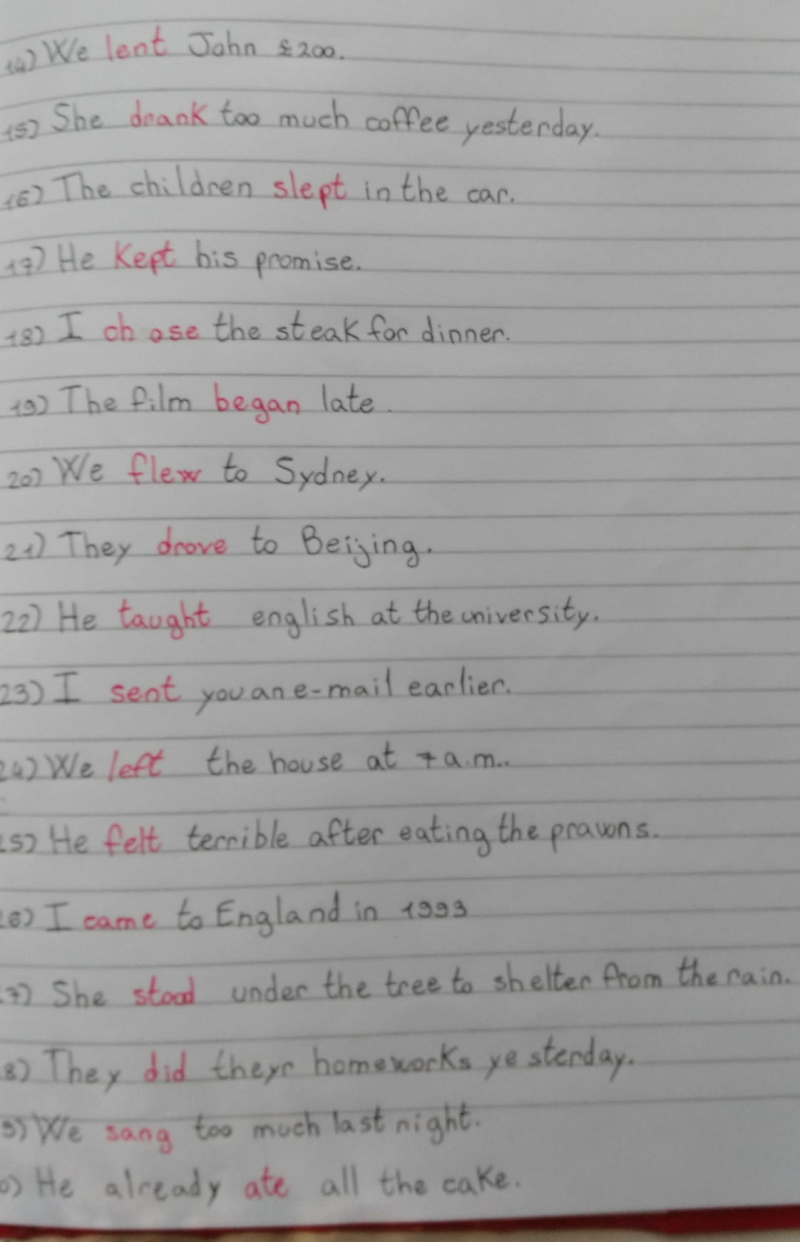 14) We lent John £200.
15) She drank too much coffee yesterday.
16) The children slept in the car.
17) He kept his promise.
18) I chose the steak for dinner.
19) The film began late.
20) We flew to Sydney.
21) They drove to Beijing.
22) He taught english at the university.
23) I sent you an e-mail earlier.
24) We left the house at 7 a.m..
25) He felt terrible after eating the prawns.
26) I came to England in 1993
7) She stood under the tree to shelter from the rain.
8) They did theyr homeworks yesterday.
9) We sang too much last night.
0) He already ate all the cake.